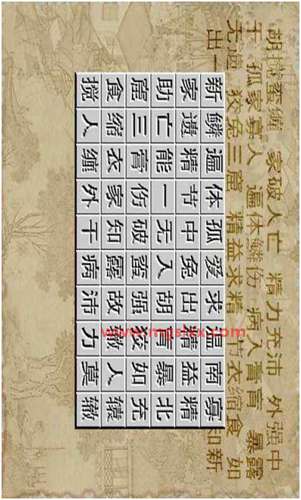 胡搅蛮缠 家破人亡 精力充沛 外强中
干 孤家寡人 遍体鳞伤 病入膏肓 暴露
无遗 狡兔三窟 精益求精 节衣缩食 如
出一 知新
新鳞遍体孤爱求温南寡
家遗精节中兔出精益精
助亡能一无入胡肓暴北
窟三膏伤破蛮强狡如充
食缩衣家知露故人辕
搅人缠外干病沛力莫辙